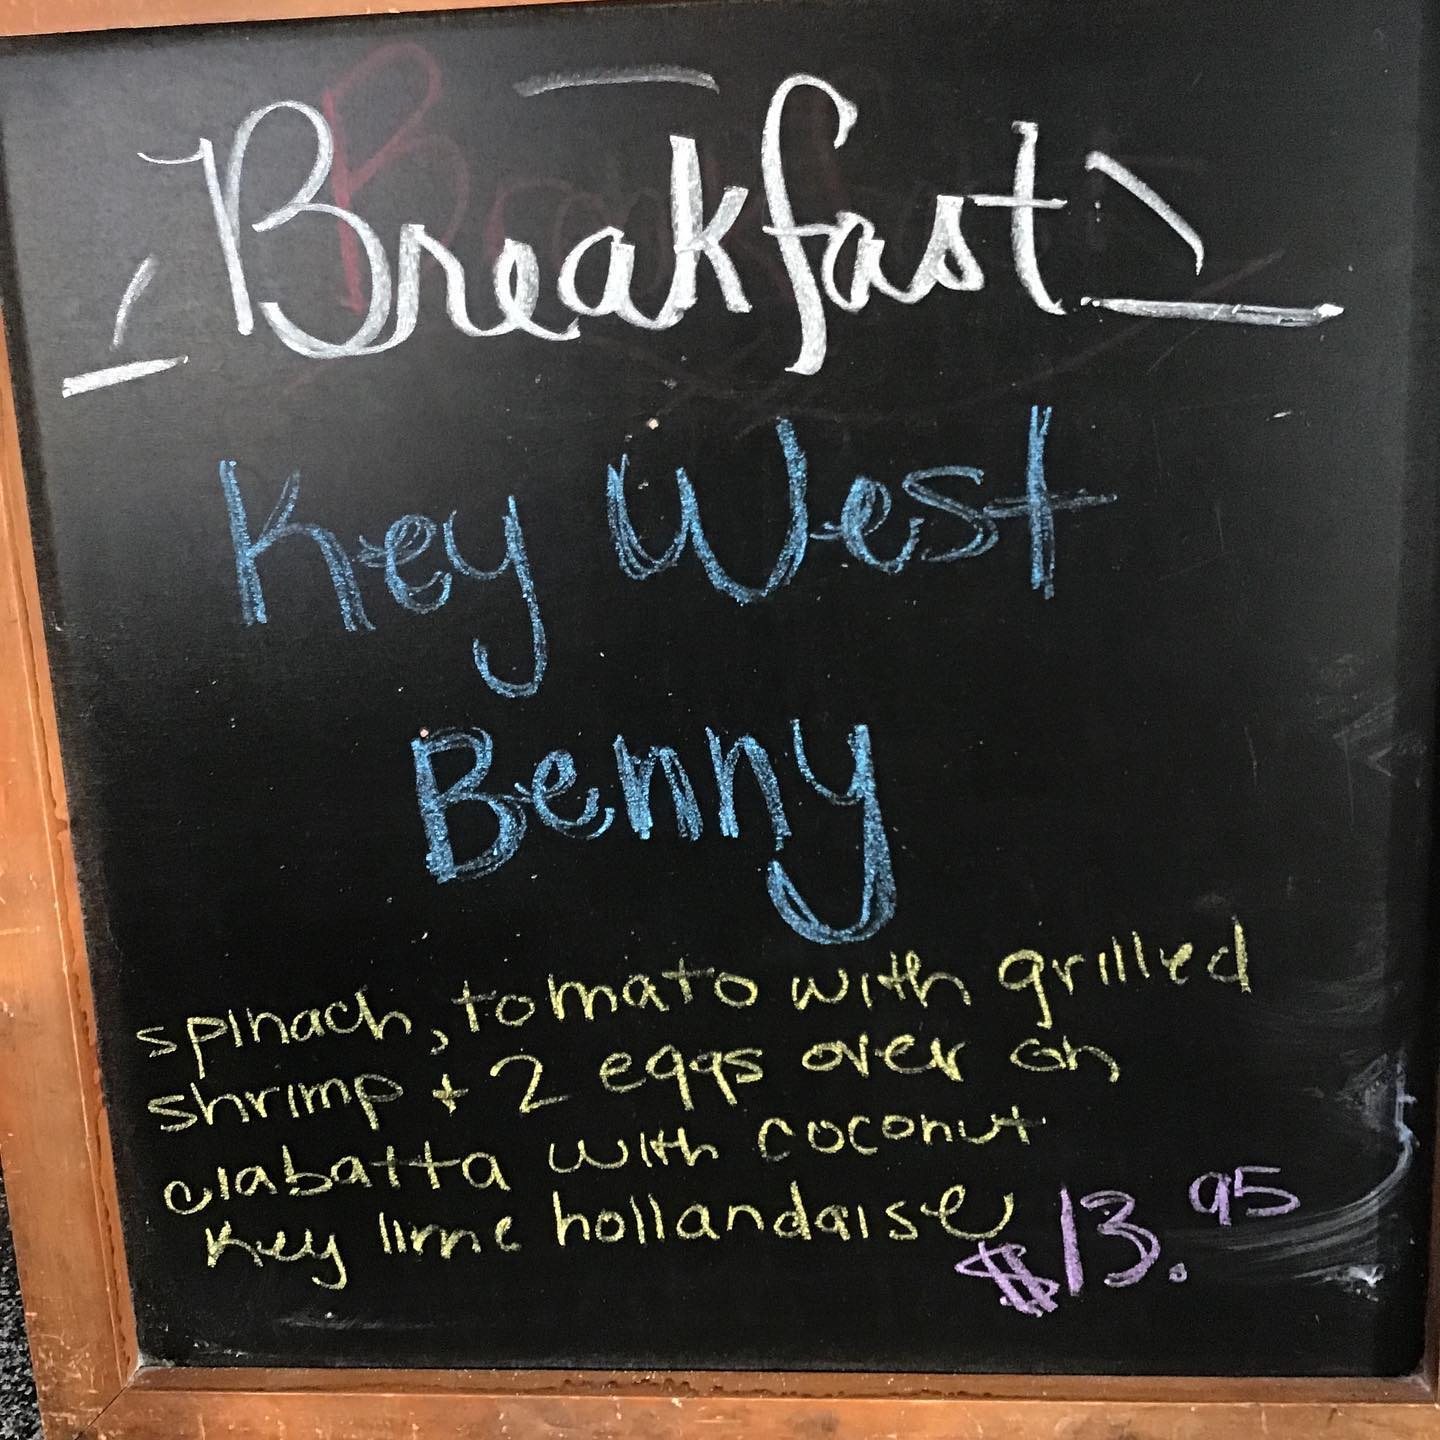 Breakfast
Key West
Benny
spinach, tomato with grilled
shrimp + 2 eggs over on
ciabatta with coconut
Key lime hollandaise
$13.95